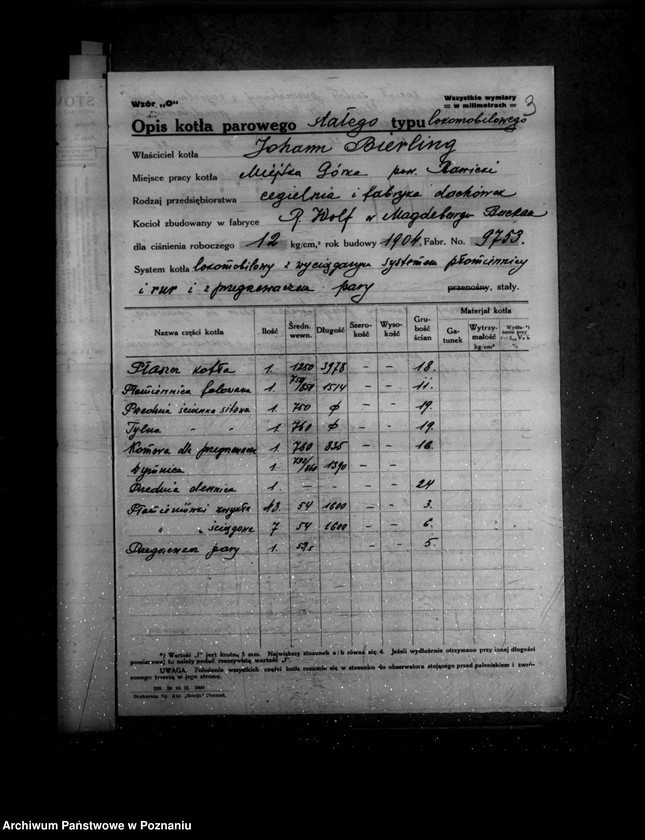 Wzór „O“
Wszystkie wymiary
w milimetrach
3
Opis kotła parowego stałego typu lokomobilowego
Właściciel kotła Johann Bierling
Miejsce pracy kotła Miejska Górka pow. Rawicki
Rodzaj przedsiębiorstwa cegielnia i fabryka dachówek
Kocioł zbudowany w fabryce R. Wolf w Magdeburgu Buckau
dla ciśnienia roboczego 12 kg/cm,² rok budowy 1904. Fabr. No. 9753.
System kotła lokomobilowy z wyciąganym systemem płomiennicy
i rur i z przegrzewaczem pary przenośny, stały.
Nazwa części kotła Ilość Średn. wewn. Długość Szerokość Wysokość Grubość ścian Materjał kotła
Gatunek Wytrzymałość kg/cm²
Płaszcz kotła 1. 1250 3978 – – 18.
Płomiennica falowana 1. 750/850 1514 – – 11.
Przednia ścianka sitowa 1. 750 ф – – 19.
Tylna „ „ 1. 760 ф – – 19.
Komora dla przegrzewacza 1. 780 835 – – 16.
1. 1390 – –
Przednia dennica 1. – – – – 24
Płomieniówki zwykłe 43. 54 1600 – – 3.
„ ściągowe 7 54 1600 – – 6.
Przegrzewacz pary 1. – – 5.
*) Wartość „l“ jest krotną, 5 mm. Największy stosunek a : b równa się 4. Jeżeli wydłużenie otrzymano przy innej długości
pomiarowej to należy podać rzeczywistą wartość „l“.
UWAGA. Położenie wszystkich części kotła rozumie się w stosunku do obserwatora stojącego przed paleniskiem i zwróconego
twarzą w jego stronę.
Drukarnia Sp. Akc. Poznań.
Archiwum Państwowe w Poznaniu